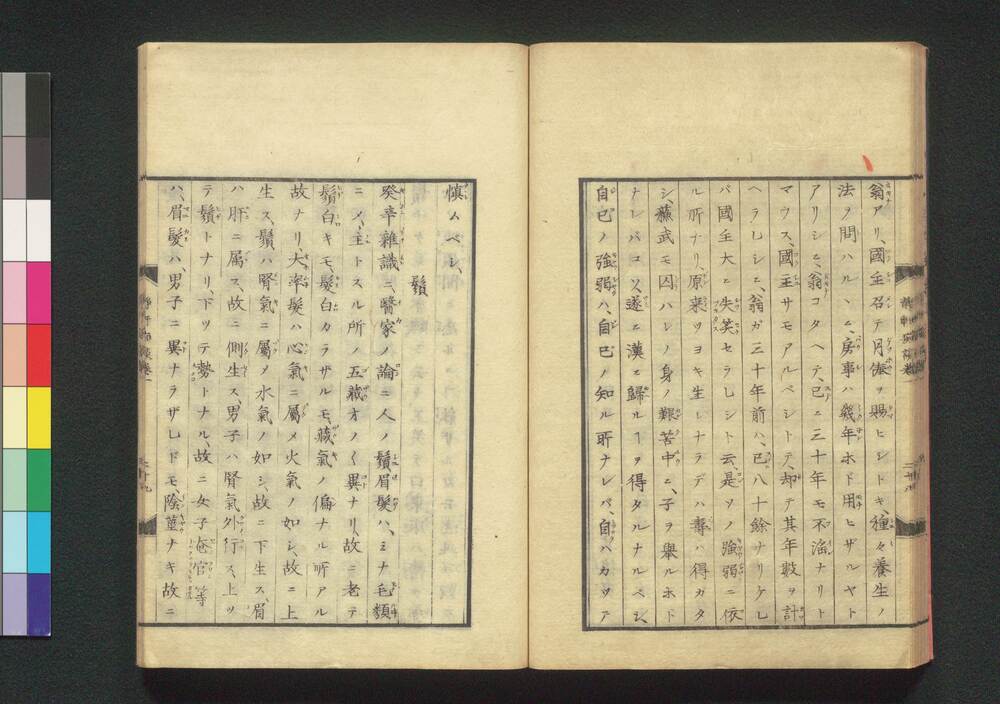 翁アリ、國主召テ月俸ヲ賜ヒシトキ、種々養生ノ
法ヲ問ハルヽニ、房事ハ幾年ホド用ヒザルヤト
アリシニ、翁コタヘテ、已ニ三十年モ不淫ナリト
マウス、國主サモアルベシトテ、却テ其年数ヲ計
ヘラレシニ、翁ガ三十年前ハ、已ニ八十餘ナリケレ
バ國主大ニ失笑セラレシト云、是ソノ強弱ニ依
ル所ナリ、原来ツヨキ生レナラデハ壽ハ得ガタ
シ、蘓武モ囚ハレノ身ノ艱苦中ニ、子ヲ舉ルホド
ナレバコソ、遂ニ漢ヱ歸ルヿヲ得タルナルベシ、
自己ノ強弱ハ、自己ノ知ル所ナレバ、自ハカツテ
慎ムベシ、
鬚
癸辛雜識ニ、醫家ノ論ニ人ノ鬚眉髮ハ、ミナ毛類
ニメ、主トスル所ノ五藏オノ〱異ナリ、故ニ老テ
鬚白キモ、髮白カラザルモ、藏氣ノ偏ナル所アル
故ナリ、大率髮ハ心氣ニ屬メ火氣ノ如シ、故ニ上
生ス、鬚ハ腎氣ニ屬メ水氣ノ如シ故ニ下生ス、眉
ハ肝ニ属ス、故ニ側生ス、男子ハ腎氣外行ス、上ツ
テ鬚トナリ、下ツテ勢トナル、故ニ女子奄官等
ハ、眉髮ハ、男子ニ異ナラザレドモ陰莖ナキ故ニ